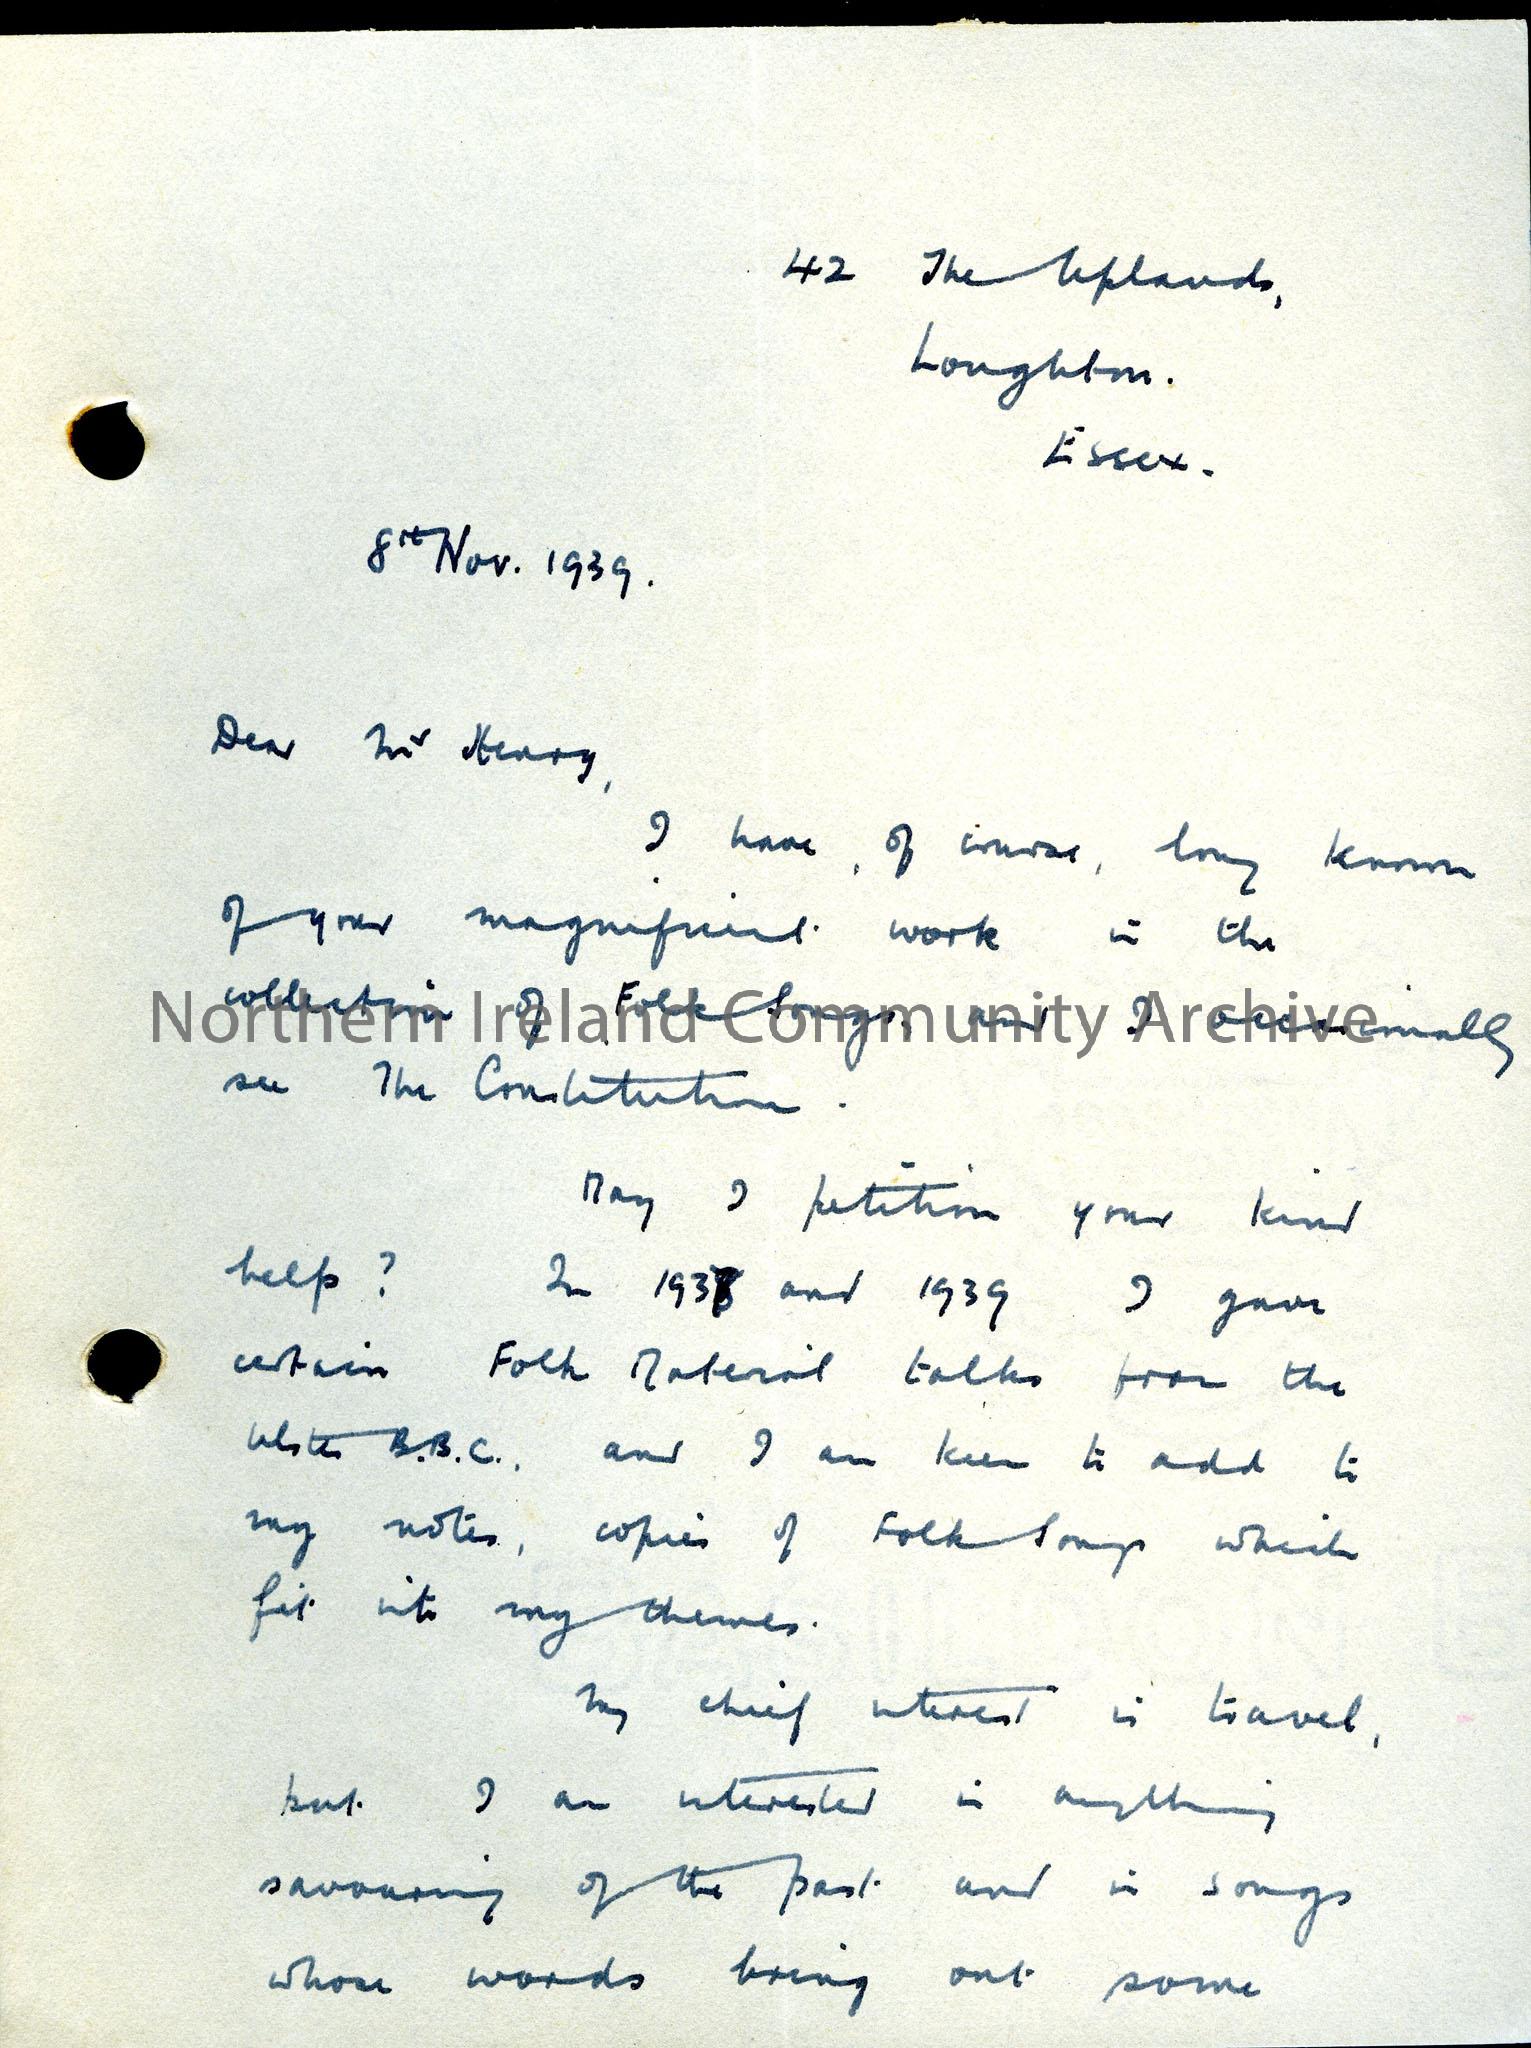 42 The Uplands,
Loughton.
Essex.
8th Nov. 1939.
Dear Mr Henry,
I have, of course, long known
of your magnificent work in the
collection of Folk Songs, and I occasionally
Northern Ireland Community Archive
see The Constitution.
May I petition your kind
help? In 1938 and 1939 I gave
certain Folk Material talks from the
Ulster B.B.C., and I am keen to add to
my notes, copies of Folk Songs which
fit into my themes.
My chief interest is travel,
but I am interested in anything
savouring of the past and in songs
whose words bring out some